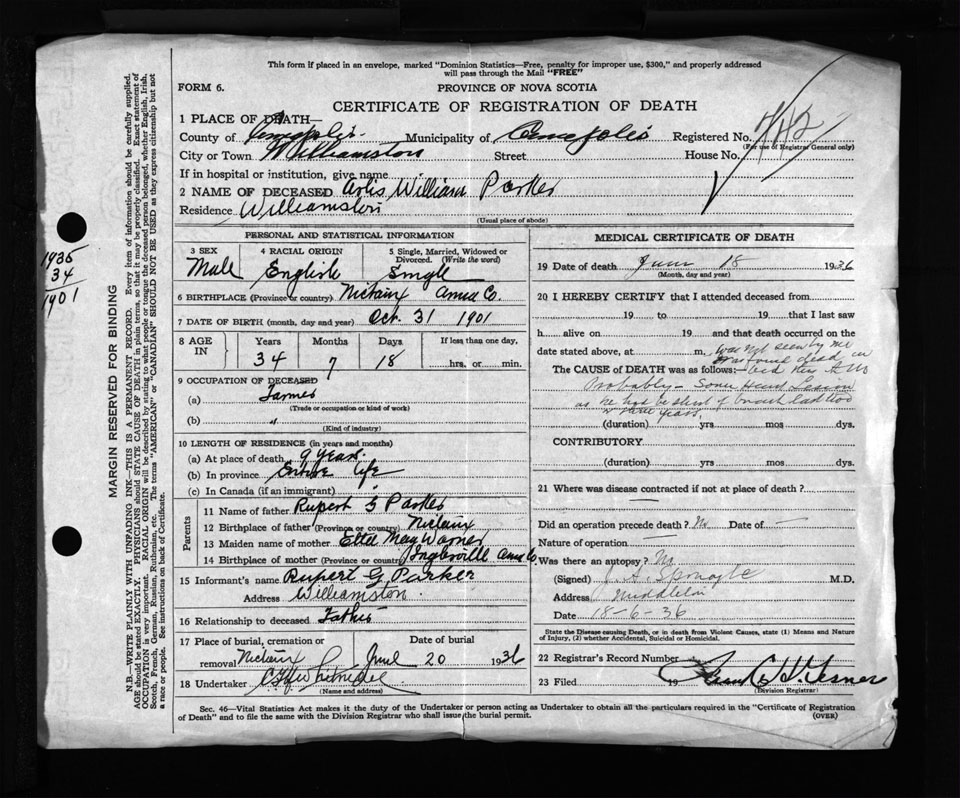 This form if placed in an envelope, marked "Dominion Statistics—Free, penalty for improper use, $300," and properly addressed
will pass through the Mail "FREE"
FORM 6.
PROVINCE OF NOVA SCOTIA
CERTIFICATE OF REGISTRATION OF DEATH
1 PLACE OF DEATH—
County of Municipality of Annapolis Registered No.
(For use of Registrar General only)
City or Town Williamston Street House No.
If in hospital or institution, give name
2 NAME OF DECEASED Arlis William Parker
Residence Williamston
(Usual place of abode)
PERSONAL AND STATISTICAL INFORMATION
3 SEX 4 RACIAL ORIGIN 5 Single, Married, Widowed or
Divorced. (Write the word)
Male English Single
6 BIRTHPLACE (Province or country) Nictaux Anna Co.
7 DATE OF BIRTH (month, day and year) Oct. 31 1901
8 AGE IN Years Months Days If less than one day,
34 7 18 hrs. or min.
9 OCCUPATION OF DECEASED
(a) Farmer
(Trade or occupation or kind of work)
(b) "
(Kind of industry)
10 LENGTH OF RESIDENCE (in years and months)
(a) At place of death 9 years
(b) In province Entire life
(c) In Canada (if an immigrant)
Parents
11 Name of father Rupert G Parker
12 Birthplace of father (Province or country) Nictaux
13 Maiden name of mother Etta May Warner
14 Birthplace of mother (Province or country) Inglisville Anna Co.
15 Informant's name Rupert G. Parker
Address Williamston
16 Relationship to deceased Father
17 Place of burial, cremation or Date of burial
removal Nictaux June 20 1936
18 Undertaker
(Name and address)
MEDICAL CERTIFICATE OF DEATH
19 Date of death June 18 1936
(Month, day and year)
20 I HEREBY CERTIFY that I attended deceased from
19 to 19 that I last saw
h alive on 19 and that death occurred on
date stated above, at m. was not seen by me
was found dead in
The CAUSE of DEATH was as follows: bed this A.M.
Probably - Some Heart Lesion
as he had be short of breath last two
or three years.
(duration) yrs mos dys.
CONTRIBUTORY
(duration) yrs. mos. dys.
21 Where was disease contracted if not at place of death? —
Did an operation precede death? No. Date of —
Nature of operation —
Was there an autopsy? No
(Signed) M.D.
Address Middleton
Date 18-6-36
State the Disease causing Death, or in death from Violent Causes, state (1) Means and Nature
of Injury, (2) whether Accidental, Suicidal or Homicidal.
22 Registrar's Record Number
23 Filed 19
(Division Registrar)
Sec. 46—Vital Statistics Act makes it the duty of the Undertaker or person acting as Undertaker to obtain all the particulars required in the "Certificate of Registration
of Death" and to file the same with the Division Registrar who shall issue the burial permit. (OVER)
MARGIN RESERVED FOR BINDING
N.B.—WRITE PLAINLY WITH UNFADING INK—THIS IS A PERMANENT RECORD. Every item of information should be carefully supplied.
AGE should be stated EXACTLY. PHYSICIANS should STATE CAUSE OF DEATH in plain terms, so that it may be properly classified. Exact statement of
OCCUPATION is very important. RACIAL ORIGIN will be described by stating to what people or tongue the deceased person belonged, whether English, Irish,
Scotch, French, German, Russian, Ruthenian, etc. The terms "AMERICAN" or "CANADIAN" SHOULD NOT BE USED as they express citizenship but not
a race or people. See instructions on back of Certificate.
1935
34
1901